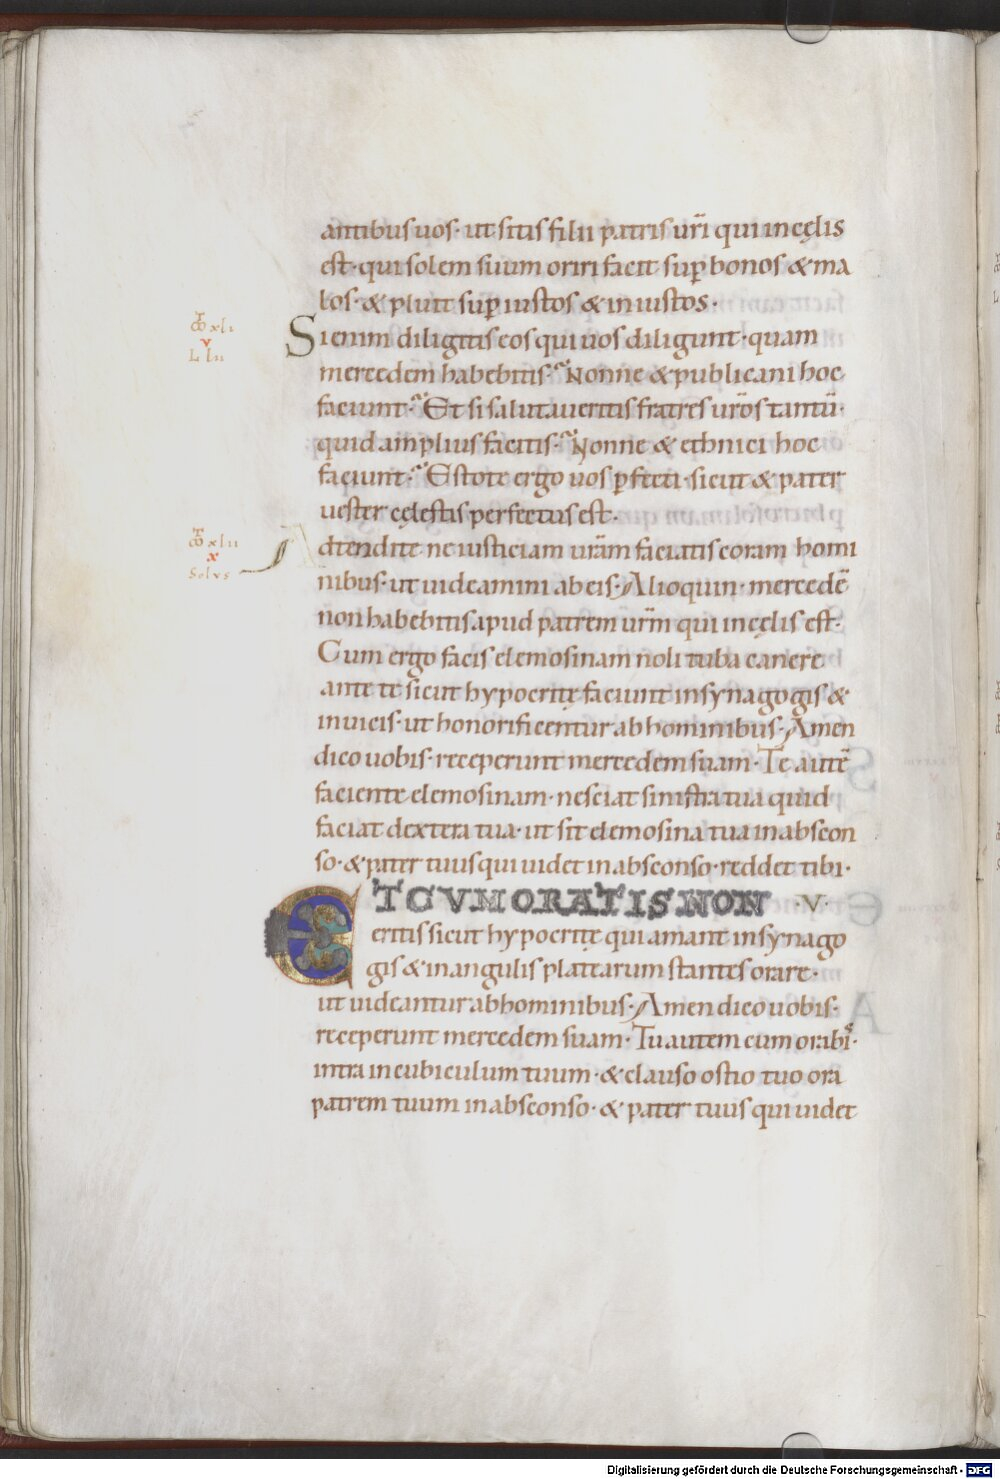 antibus uos· ut sitis filii patris ur̄i qui in cęlis
est· qui solem suum oriri facit sup̄ bonos & ma
los· & pluit sup̄ iustos & iniustos·
Si enim diligitis eos qui uos diligunt· quam
mercedem habebitis· Nonne & publicani hoc
faciunt· Et si salutaueritis fratres ur̄os tantū·
quid amplius facitis· Nonne & ethnici hoc
faciunt· Estote ergo uos p̄fecti· sicut & pater
uester cęlestis perfectus est·
Adtendite ne iusticiam ur̄am faciatis coram homi
nibus· ut uideamini ab eis· Alioquin· mercedē
non habebitis apud patrem ur̄m qui in cęlis est·
Cum ergo facis elemosinam noli tuba canere
ante te sicut hypocritę faciunt in synagogis &
in uicis· ut honorificentur ab hominibus· Amen
dico uobis· receperunt mercedem suam· Te autē
faciente elemosinam· nesciat sinistra tua quid
faciat dextera tua· ut sit elemosina tua in abscon
so· & pater tuus qui uidet in absconso· reddet tibi·
ET CVM ORATIS NON ·V·
eritis sicut hypocritę qui amant in synago
gis & in angulis platearum stantes orare·
ut uideantur ab hominibus· Amen dico uobis·
receperunt mercedem suam· Tu autem cum orabis·
intra in cubiculum tuum· & clauso ostio tuo ora
patrem tuum in absconso· & pater tuus qui uidet
xli
v
L lii
xlii
x
Solus
Digitalisierung gefördert durch die Deutsche Forschungsgemeinschaft - DFG